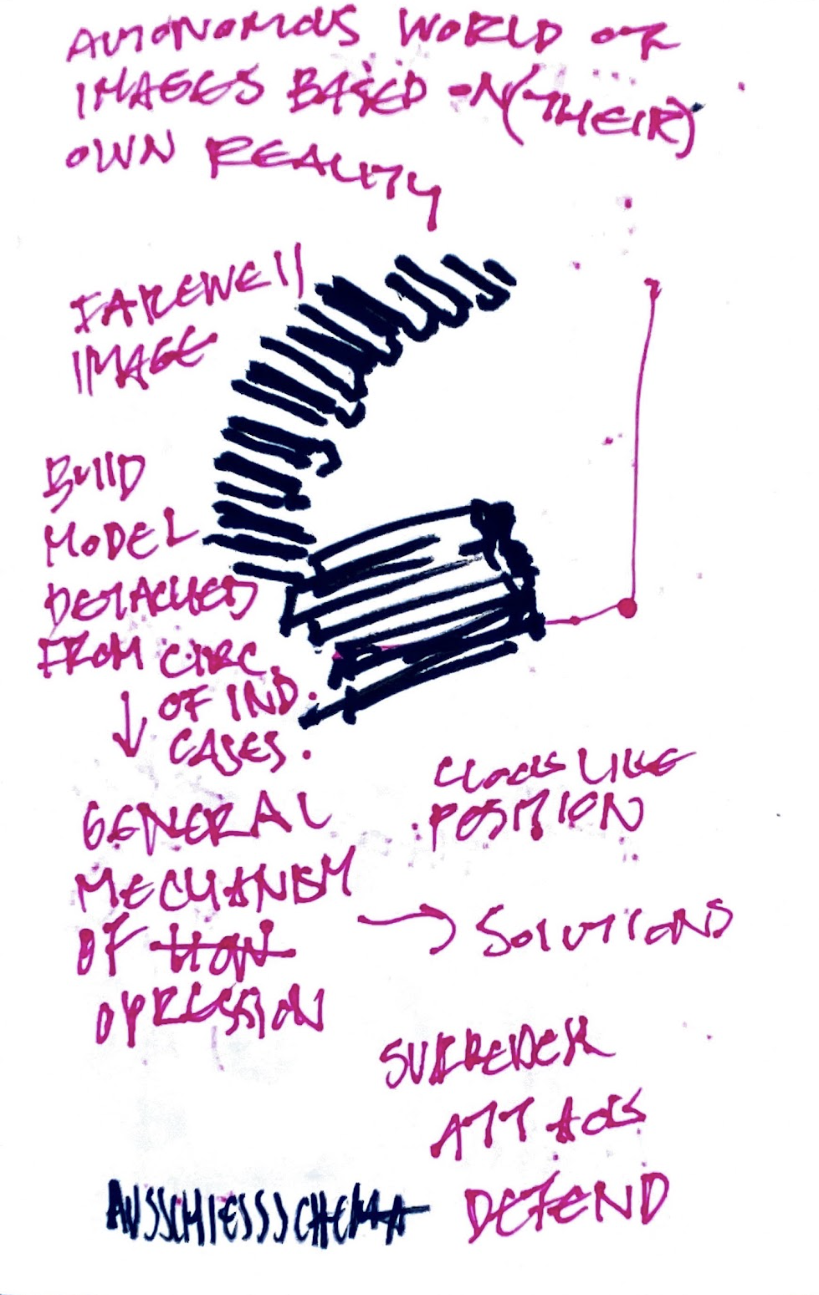 AUTONOMOUS WORLD OF
IMAGES BASED ON (THEIR)
OWN REALITY
FAREWELL
IMAGE
BUILD
MODEL
DETACHED
FROM CIRC.
↓ OF IND.
CASES.
GENERAL
MECHANISM
OF HOW
OPRESSION
CLOCKLIKE
POSITION
→ SOLUTIONS
SURREDER
ATTACK
DEFEND
AUSSCHIESSSCHEMA